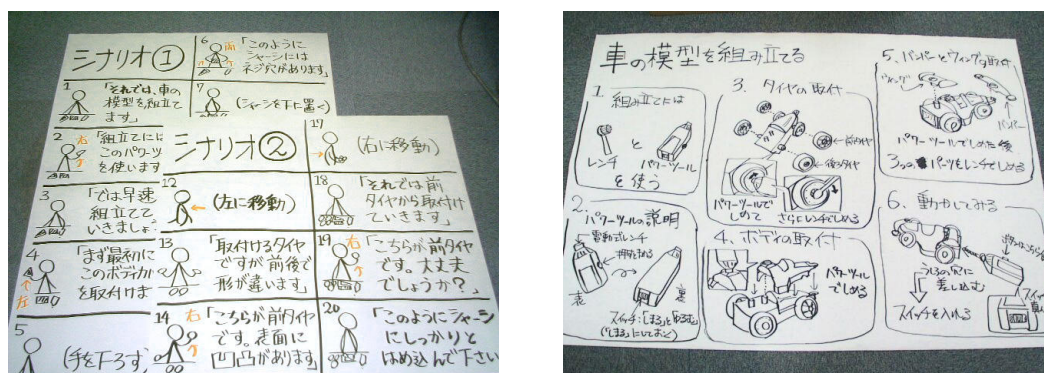 シナリオ①
1
「それでは、車の
模型を組立て
ます」
2
右
「組立てにに
このパワーツ
を使います
3
「では早速
組立てて
いきましょ
4
左
「まず最初に
このボディか
を取付けま
5
(手を下ろす
6
両
「このように
シャーシには
ネジ穴があります」
7
(シャーシを下に置く)
シナリオ②
12
(左に移動)
13
「取付けるタイヤ
ですが前後で
形が違います」
14
右
「こちらが前タイヤ
です。表面に
凹凸があります」
17
(右に移動)
18
「それでは前
タイヤから取付け
ていきます」
19
右
「こちらが前タイヤ
です。大丈夫
でしょうか?」
20
「このようにシャーシ
にしっかりと
はめ込んで下さい
車の模型を組み立てる
1.
組み立てには
レンチ
と
パワーツール
を使う
2.
パワーツールの説明
電動式レンチ
表
裏
スイッチ:「しまる」と「ゆるむ」
(「しまる」にしておく)
3. タイヤの取付
前タイヤ
後タイヤ
パワーツールで
しめて
さらにレンチでしめる
4. ボディの取付
パワーツール
でしめる
5. バンパーとウィング取付
ウィング
バンパー
パワーツールでしめた後
3つのパーツをレンチでしめる
6. 動かしてみる
うしろの穴に
差し込む
スイッチを入れる